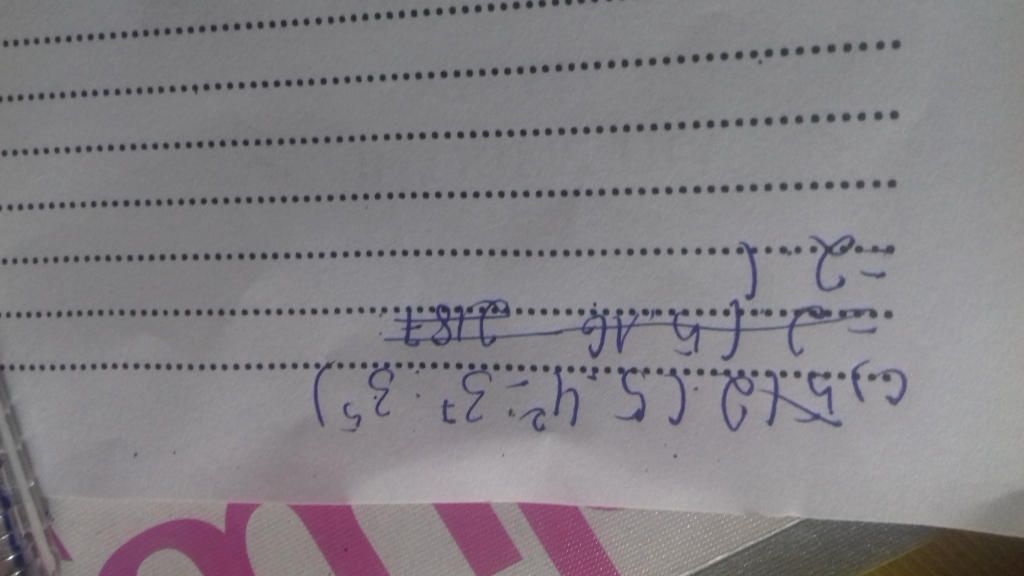 c) 5 (2 . ( 5 . 4² - 3⁷ : 3⁵ )
= 2 ( 5 . 16 - 2187
= 2 (